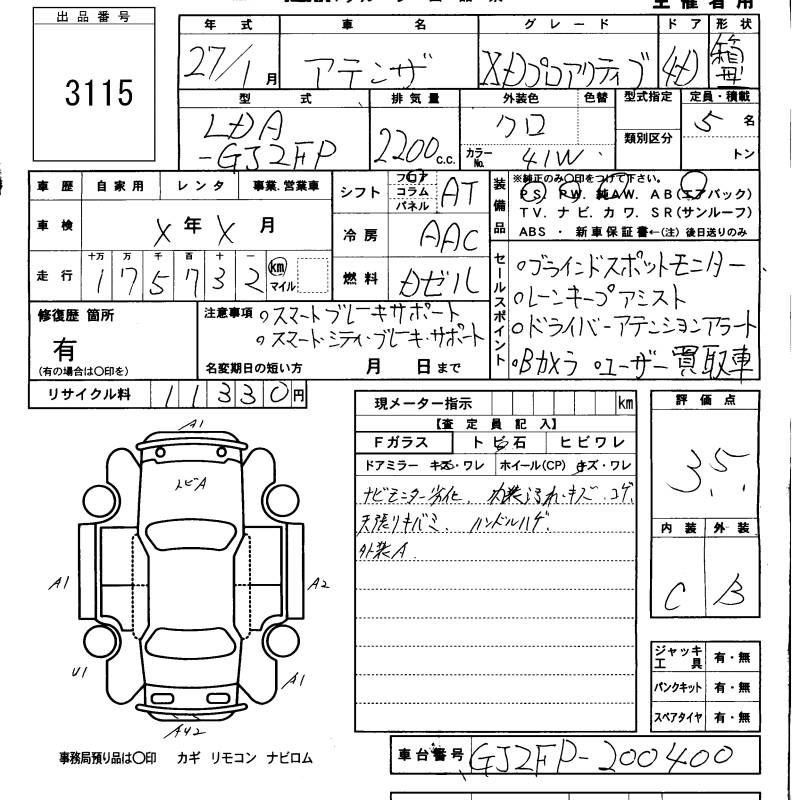 出品番号
3115
年式 車名 グレード ドア 形状
27/1月 アテンザ XDプロアクティブ 4D 箱
型式 排気量 外装色 色替 型式指定 定員・積載
LDA-GJ2FP 2200c.c. クロ 類別区分 5名
カラーNo. 41W トン
車歴 自家用 レンタ 事業.営業車
車検 X年X月
走行 十万 万 千 百 十 一 km マイル
175732
シフト フロア コラム パネル AT
冷房 AAC
燃料 Dゼル
装備品 ※純正のみ○印をつけて下さい。
PS. PW. 純AW. AB(エアバック)
TV. ナビ. カワ. SR(サンルーフ)
ABS ・ 新車保証書←(注) 後日送りのみ
セールスポイント
○ブラインドスポットモニター
○レーンキープアシスト
○ドライバーアテンションアラート
○Bカメラ ○ユーザー買取車
修復歴 箇所
有
(有の場合は○印を)
注意事項 ○スマートブレーキサポート
○スマート・シティ・ブレーキ・サポート
名変期日の短い方 月 日まで
リサイクル料 11330円
現メーター指示 km
【査定員記入】
Fガラス トビ石 ヒビワレ
ドアミラー キズ・ワレ ホイール(CP) キズ・ワレ
ナビモニター劣化. 内装汚れ・キズ・コゲ.
天張りキバミ. ハンドルハゲ.
外装A.
評価点
3.5.
内装 外装
C B
ジャッキ工具 有・無
パンクキット 有・無
スペアタイヤ 有・無
A1
トビA
A1
A2
U1
A1
A42
事務局預り品は○印 カギ リモコン ナビロム
車台番号 GJ2FP-200400